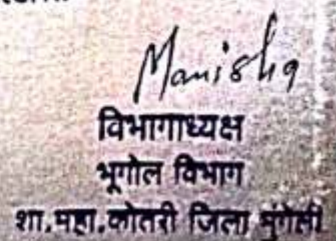 Manisha
विभागाध्यक्ष
भूगोल विभाग
शा.महा.कोतरी जिला मुंगेली